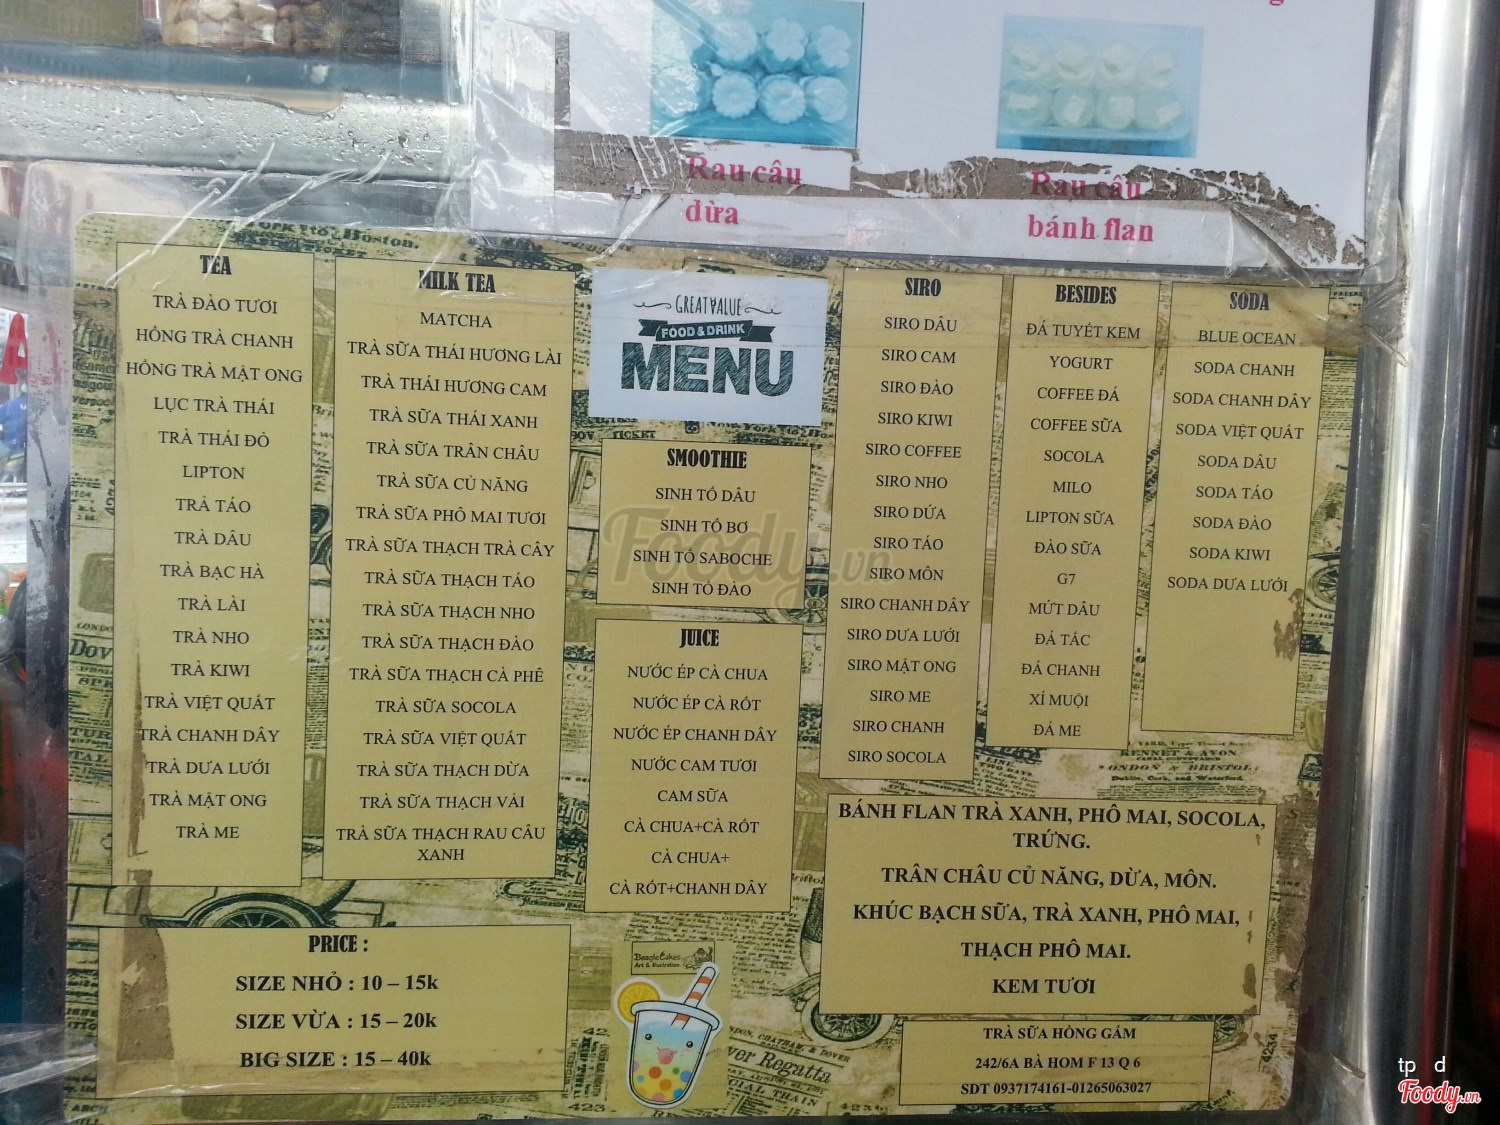 Rau câu
dừa
Rau câu
bánh flan
TEA
TRÀ ĐÀO TƯƠI
HỒNG TRÀ CHANH
HỒNG TRÀ MẬT ONG
LỤC TRÀ THÁI
TRÀ THÁI ĐỎ
LIPTON
TRÀ TÁO
TRÀ DÂU
TRÀ BẠC HÀ
TRÀ LÀI
TRÀ NHO
TRÀ KIWI
TRÀ VIỆT QUẤT
TRÀ CHANH DÂY
TRÀ DƯA LƯỚI
TRÀ MẬT ONG
TRÀ ME
MILK TEA
MATCHA
TRÀ SỮA THÁI HƯƠNG LÀI
TRÀ THÁI HƯƠNG CAM
TRÀ SỮA THÁI XANH
TRÀ SỮA TRÂN CHÂU
TRÀ SỮA CỦ NĂNG
TRÀ SỮA PHÔ MAI TƯƠI
TRÀ SỮA THẠCH TRÁ CÂY
TRÀ SỮA THẠCH TÁO
TRÀ SỮA THẠCH NHO
TRÀ SỮA THẠCH ĐÀO
TRÀ SỮA THẠCH CÀ PHÊ
TRÀ SỮA SOCOLA
TRÀ SỮA VIỆT QUẤT
TRÀ SỮA THẠCH DỪA
TRÀ SỮA THẠCH VẢI
TRÀ SỮA THẠCH RAU CÂU
XANH
GREAT VALUE
FOOD & DRINK
MENU
SMOOTHIE
SINH TỐ DÂU
SINH TỐ BƠ
SINH TỐ SABOCHE
SINH TỐ ĐÀO
JUICE
NƯỚC ÉP CÀ CHUA
NƯỚC ÉP CÀ RỐT
NƯỚC ÉP CHANH DÂY
NƯỚC CAM TƯƠI
CAM SỮA
CÀ CHUA+CÀ RỐT
CÀ CHUA+
CÀ RỐT+CHANH DÂY
SIRO
SIRO DÂU
SIRO CAM
SIRO ĐÀO
SIRO KIWI
SIRO COFFEE
SIRO NHO
SIRO DỨA
SIRO TÁO
SIRO MÔN
SIRO CHANH DÂY
SIRO DƯA LƯỚI
SIRO MẬT ONG
SIRO ME
SIRO CHANH
SIRO SOCOLA
BESIDES
ĐÁ TUYẾT KEM
YOGURT
COFFEE ĐÁ
COFFEE SỮA
SOCOLA
MILO
LIPTON SỮA
ĐÀO SỮA
G7
MỨT DÂU
ĐÁ TẮC
ĐÁ CHANH
XÍ MUỘI
ĐÁ ME
SODA
BLUE OCEAN
SODA CHANH
SODA CHANH DÂY
SODA VIỆT QUẤT
SODA DÂU
SODA TÁO
SODA ĐÀO
SODA KIWI
SODA DƯA LƯỚI
BÁNH FLAN TRÀ XANH, PHÔ MAI, SOCOLA,
TRỨNG.
TRÂN CHÂU CỦ NĂNG, DỪA, MÔN.
KHÚC BẠCH SỮA, TRÀ XANH, PHÔ MAI,
THẠCH PHÔ MAI.
KEM TƯƠI
PRICE :
SIZE NHỎ : 10 – 15k
SIZE VỪA : 15 – 20k
BIG SIZE : 15 – 40k
BeagleCakes
Art & Illustration
TRÀ SỮA HỒNG GẤM
242/6A BÀ HOM F 13 Q 6
SDT 0937174161-01265063027
Foody.vn
tp d
Foody.vn